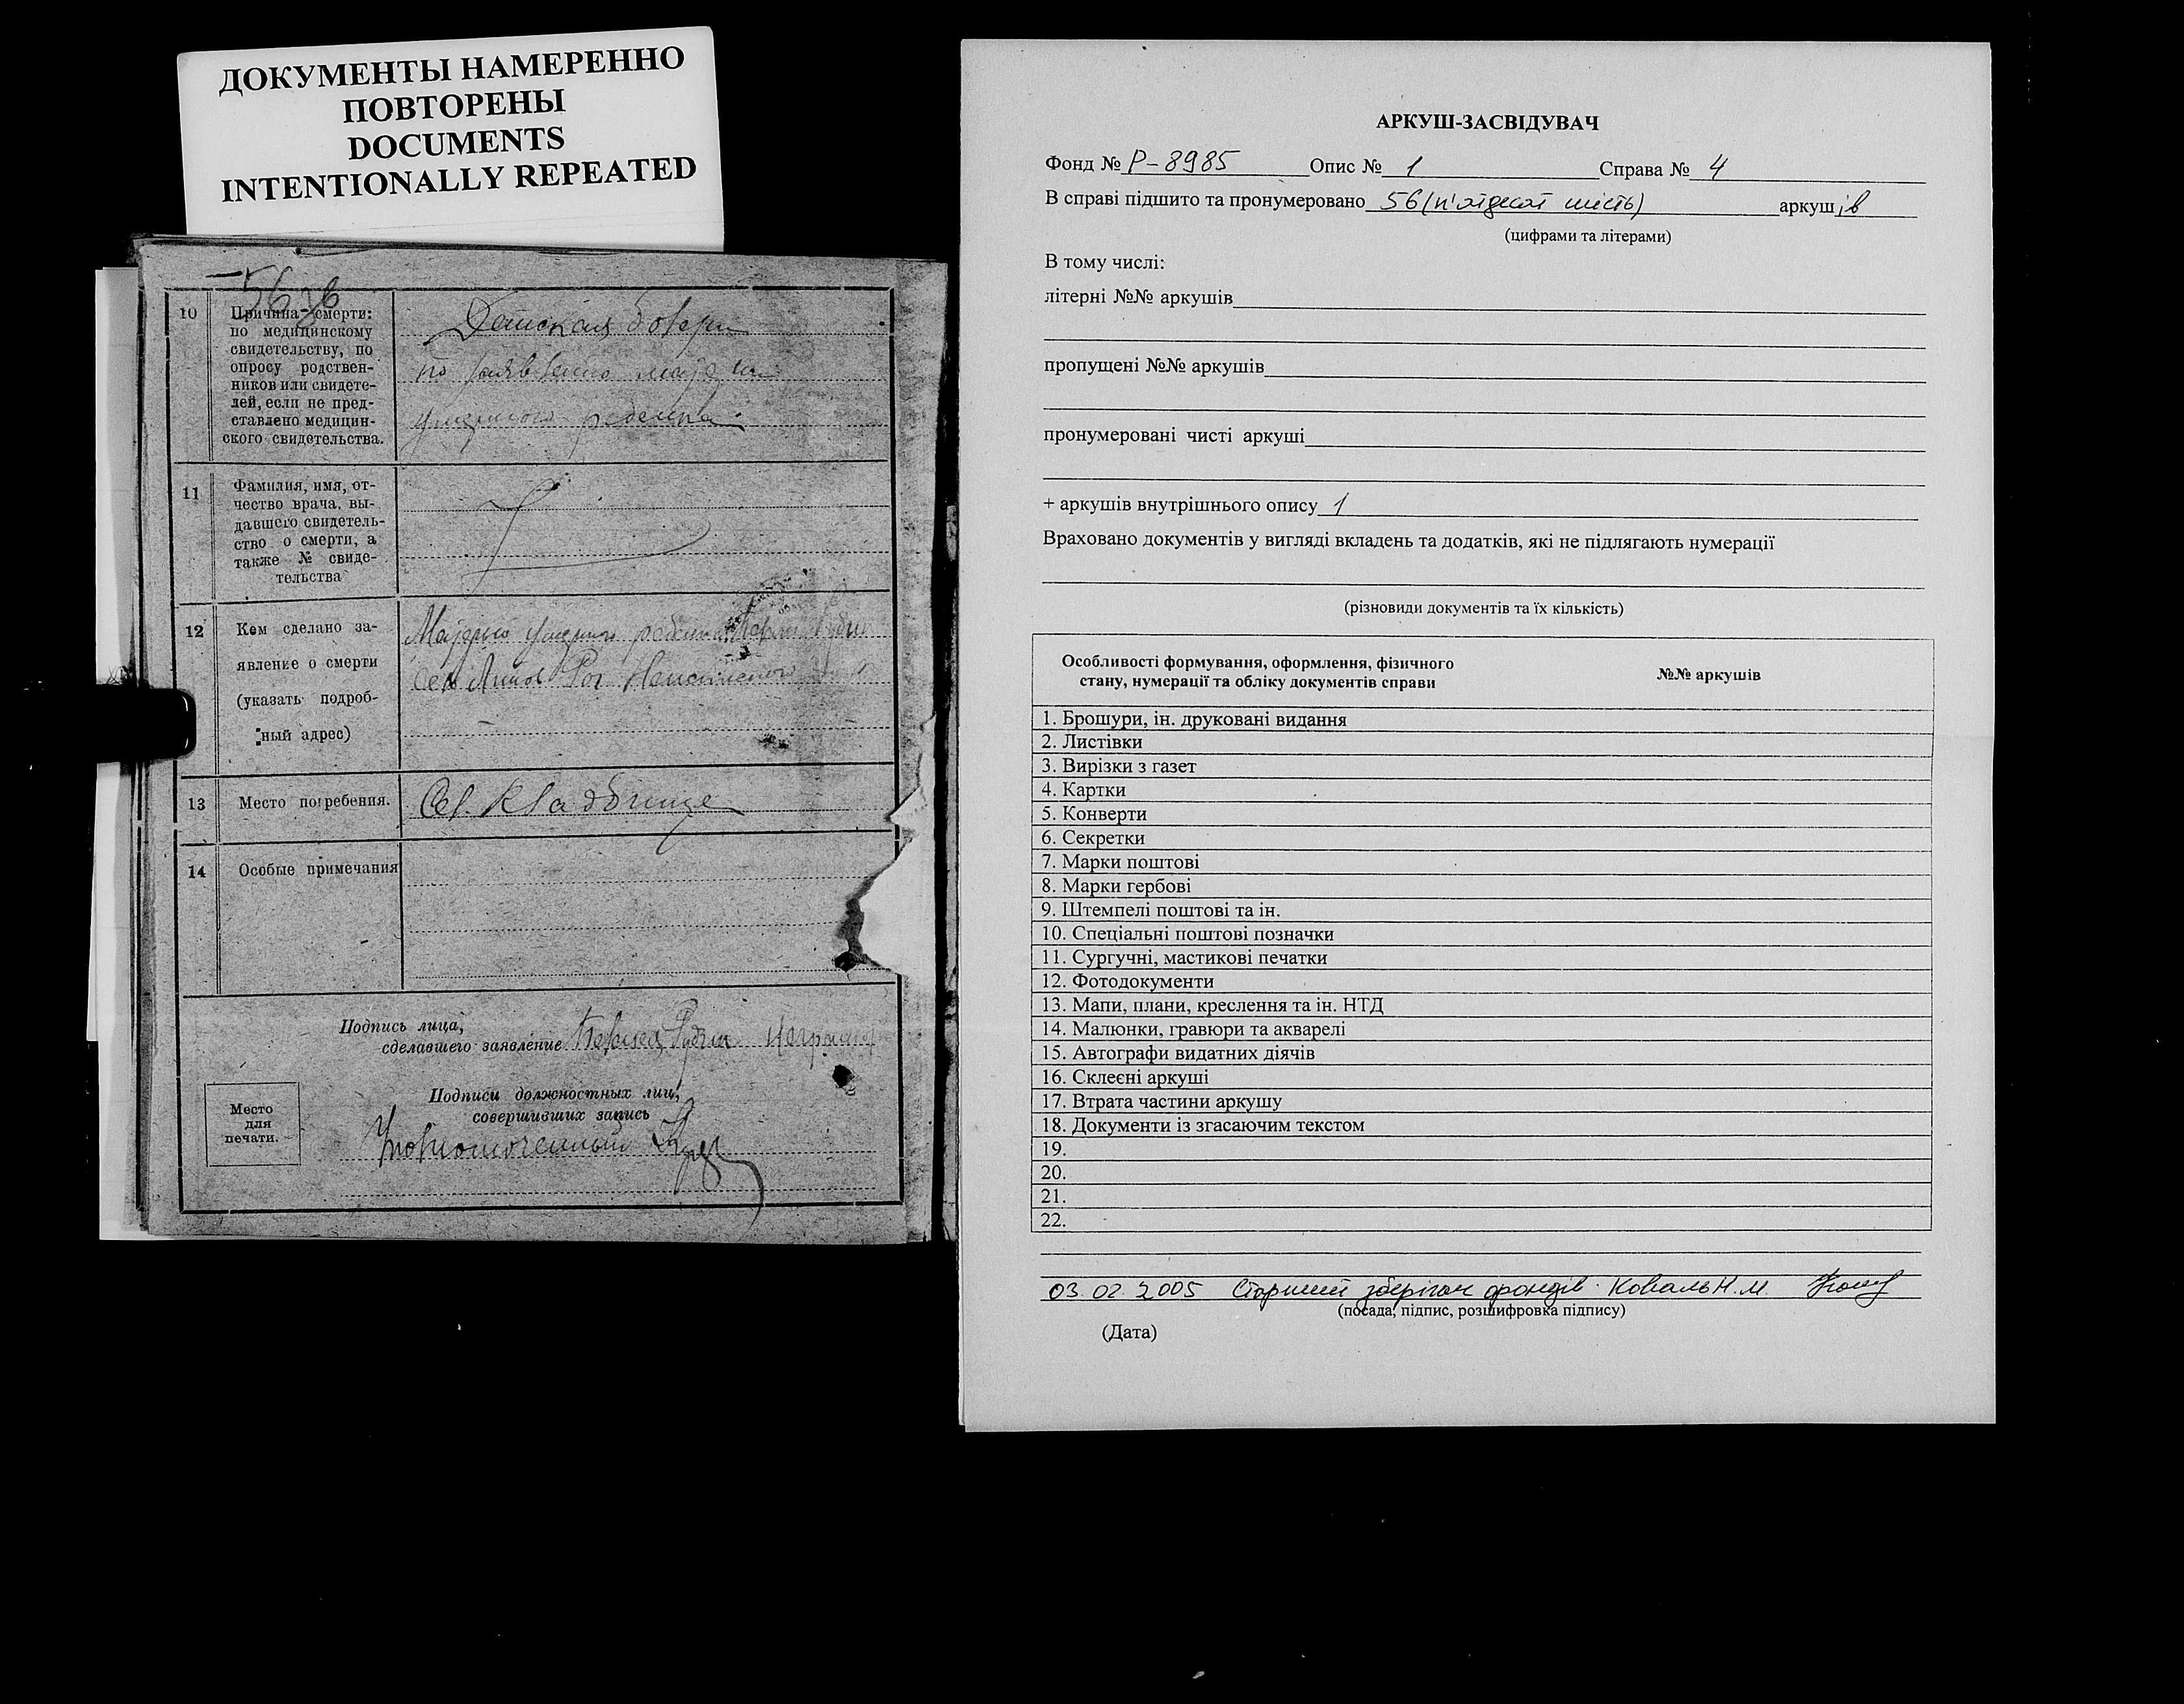 ДОКУМЕНТЫ НАМЕРЕННО
ПОВТОРЕНЫ
DOCUMENTS
INTENTIONALLY REPEATED
10
Причина смерти:
по медицинскому
свидетельству, по
опросу родствен-
ников или свидете-
лей, если не пред-
ставлено медицин-
ского свидетельства.
по заявлению
умершого
11
Фамилия, имя, от-
чество врача, вы-
давшего свидетель-
ство о смерти, а
также № свиде-
тельства
12
Кем сделано за-
явление о смерти
(указать подроб-
ный адрес)
13
Место погребения.
Сел. Кладбище
14
Особые примечания
Подпись лица,
сделавшего заявление
Подписи должностных лиц,
совершивших запись
Уполномоченный
Место
для
печати.
АРКУШ-ЗАСВІДУВАЧ
Фонд № Р-8985 Опис № 1 Справа № 4
В справі підшито та пронумеровано 56 (п'ятдесят шість) аркушів
(цифрами та літерами)
В тому числі:
літерні №№ аркушів
пропущені №№ аркушів
пронумеровані чисті аркуші
+ аркушів внутрішнього опису 1
Враховано документів у вигляді вкладень та додатків, які не підлягають нумерації
(різновиди документів та їх кількість)
Особливості формування, оформлення, фізичного
стану, нумерації та обліку документів справи
№№ аркушів
1. Брошури, ін. друковані видання
2. Листівки
3. Вирізки з газет
4. Картки
5. Конверти
6. Секретки
7. Марки поштові
8. Марки гербові
9. Штемпелі поштові та ін.
10. Спеціальні поштові позначки
11. Сургучні, мастикові печатки
12. Фотодокументи
13. Мапи, плани, креслення та ін. НТД
14. Малюнки, гравюри та акварелі
15. Автографи видатних діячів
16. Склеєні аркуші
17. Втрата частини аркушу
18. Документи із згасаючим текстом
19.
20.
21.
22.
03.02.2005 Старший зберігач фондів Коваль Н.М.
(посада, підпис, розшифровка підпису)
(Дата)